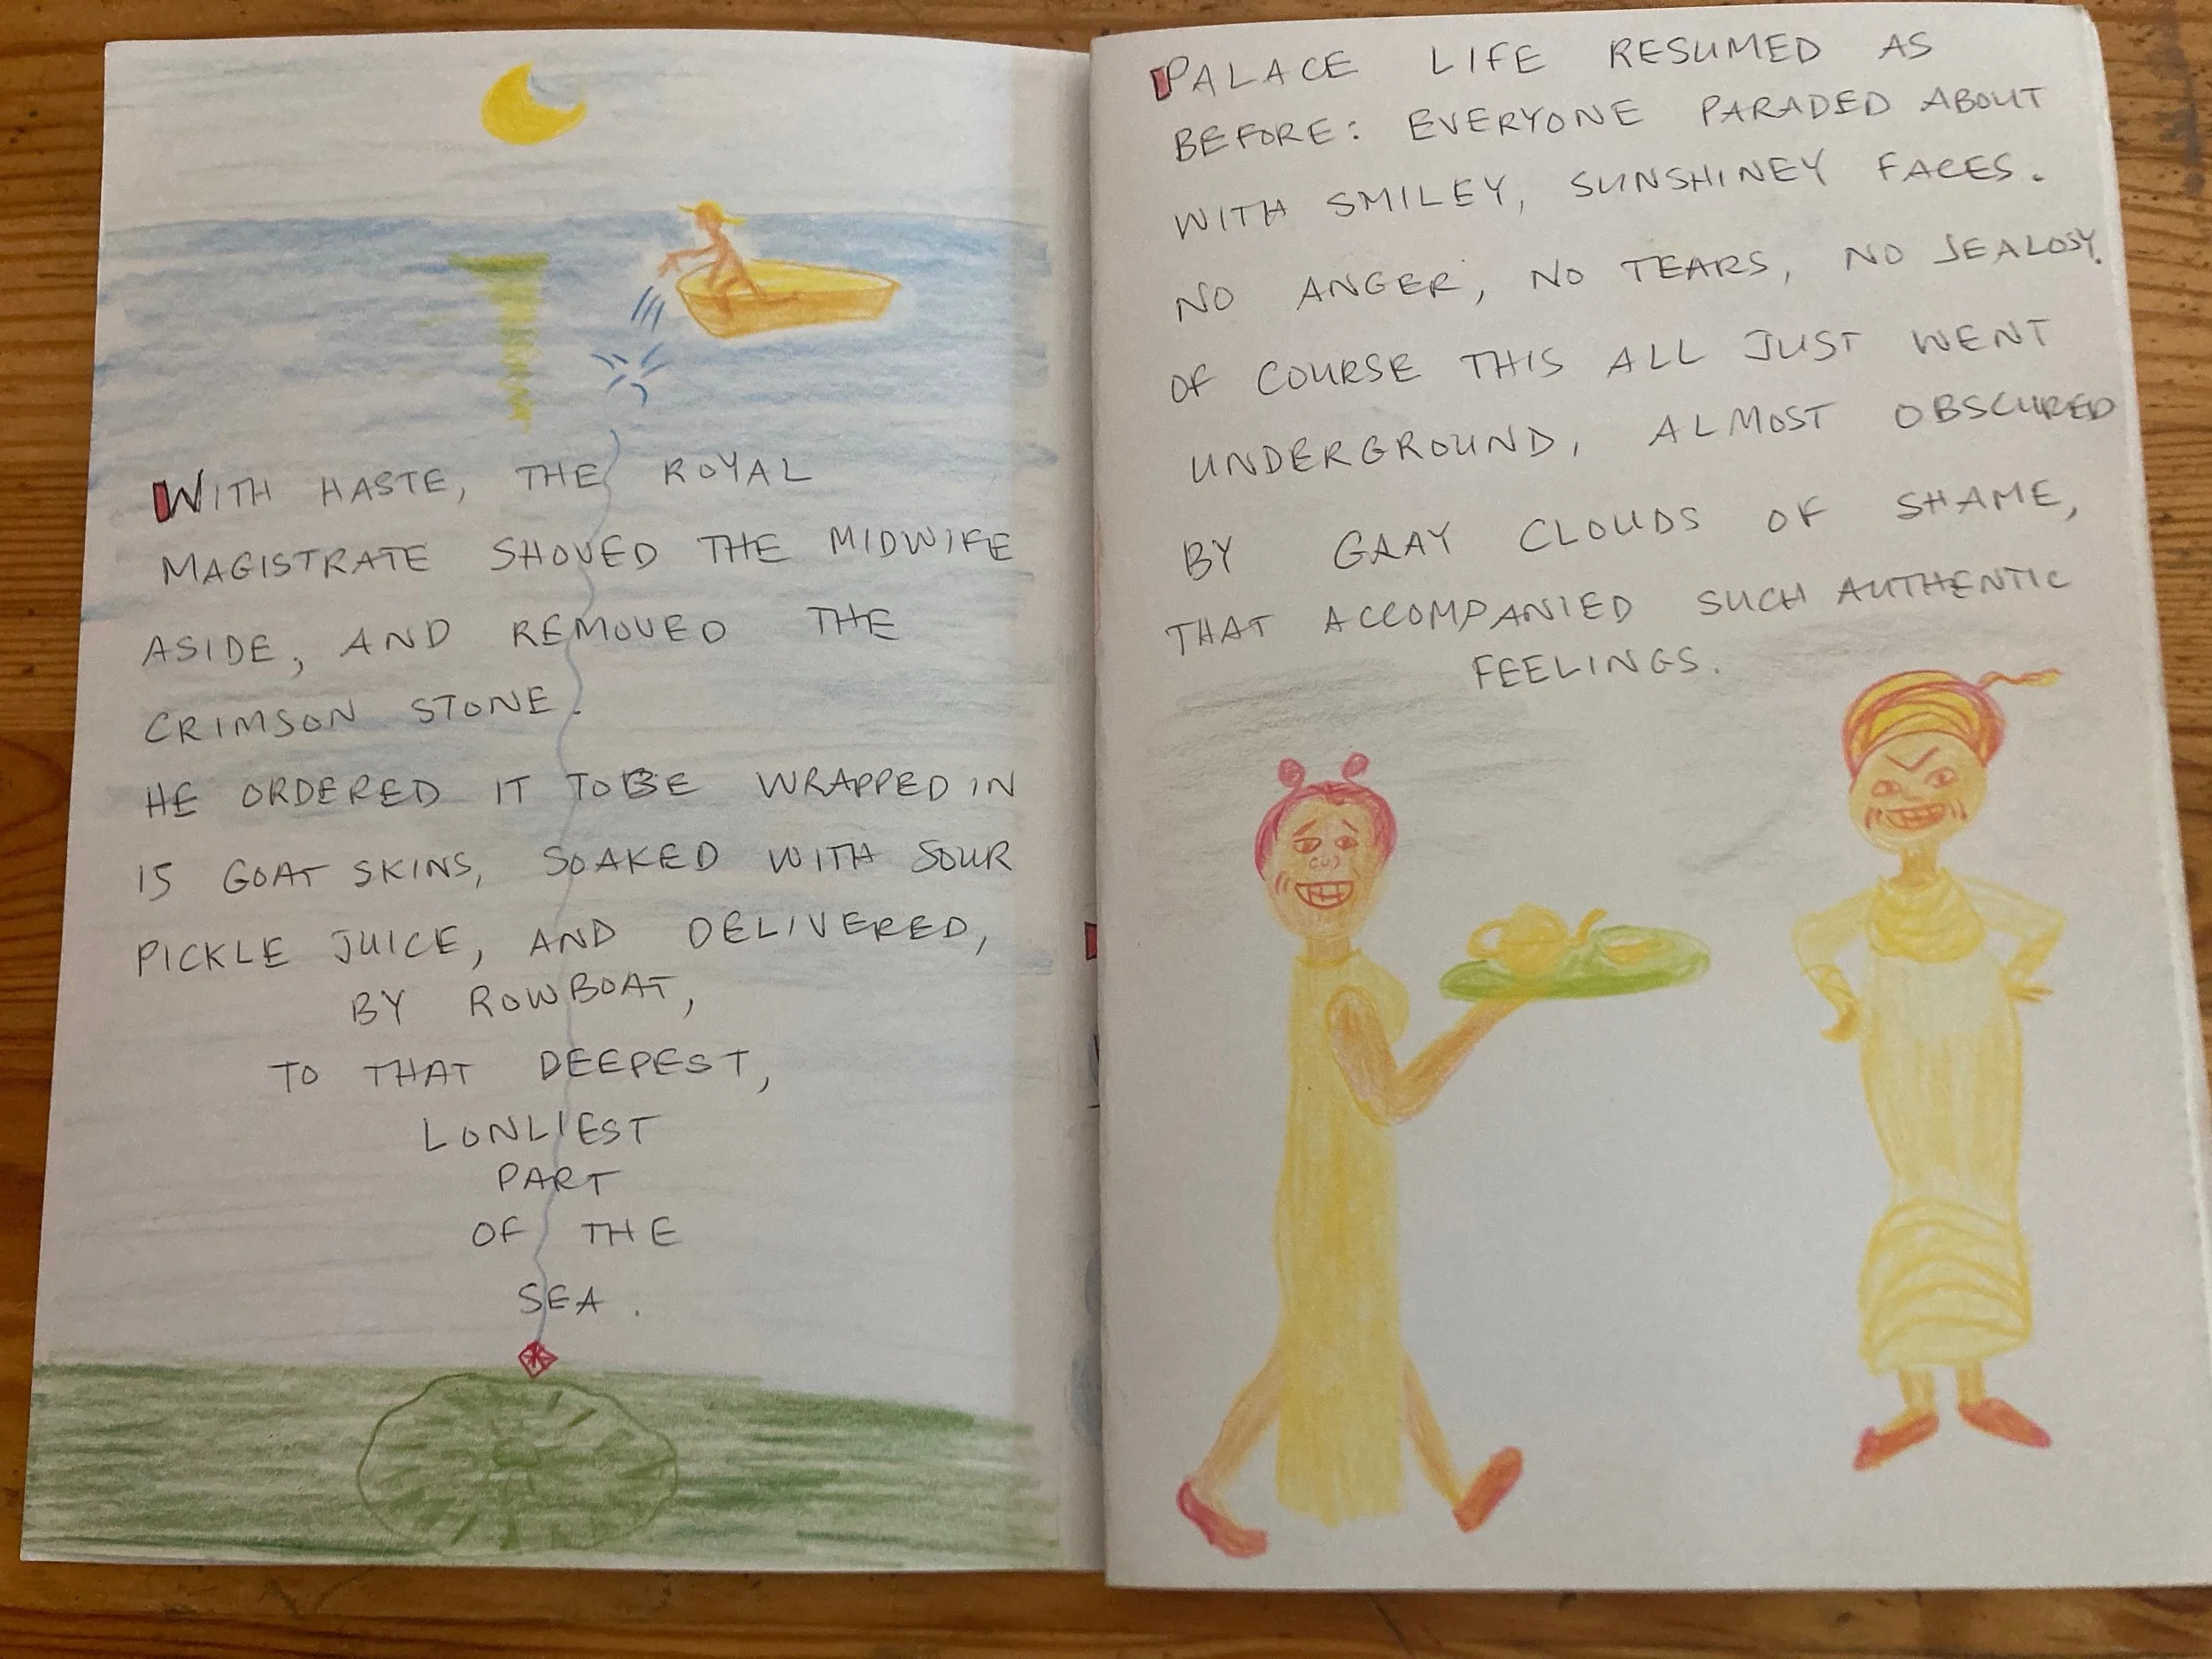 WITH HASTE, THE ROYAL
MAGISTRATE SHOVED THE MIDWIFE
ASIDE, AND REMOVED THE
CRIMSON STONE.
HE ORDERED IT TO BE WRAPPED IN
15 GOAT SKINS, SOAKED WITH SOUR
PICKLE JUICE, AND DELIVERED,
BY ROWBOAT,
TO THAT DEEPEST,
LONLIEST
PART
OF THE
SEA.
PALACE LIFE RESUMED AS
BEFORE: EVERYONE PARADED ABOUT
WITH SMILEY, SUNSHINEY FACES.
NO ANGER, NO TEARS, NO JEALOSY.
OF COURSE THIS ALL JUST WENT
UNDERGROUND, ALMOST OBSCURED
BY GRAY CLOUDS OF SHAME,
THAT ACCOMPANIED SUCH AUTHENTIC
FEELINGS.